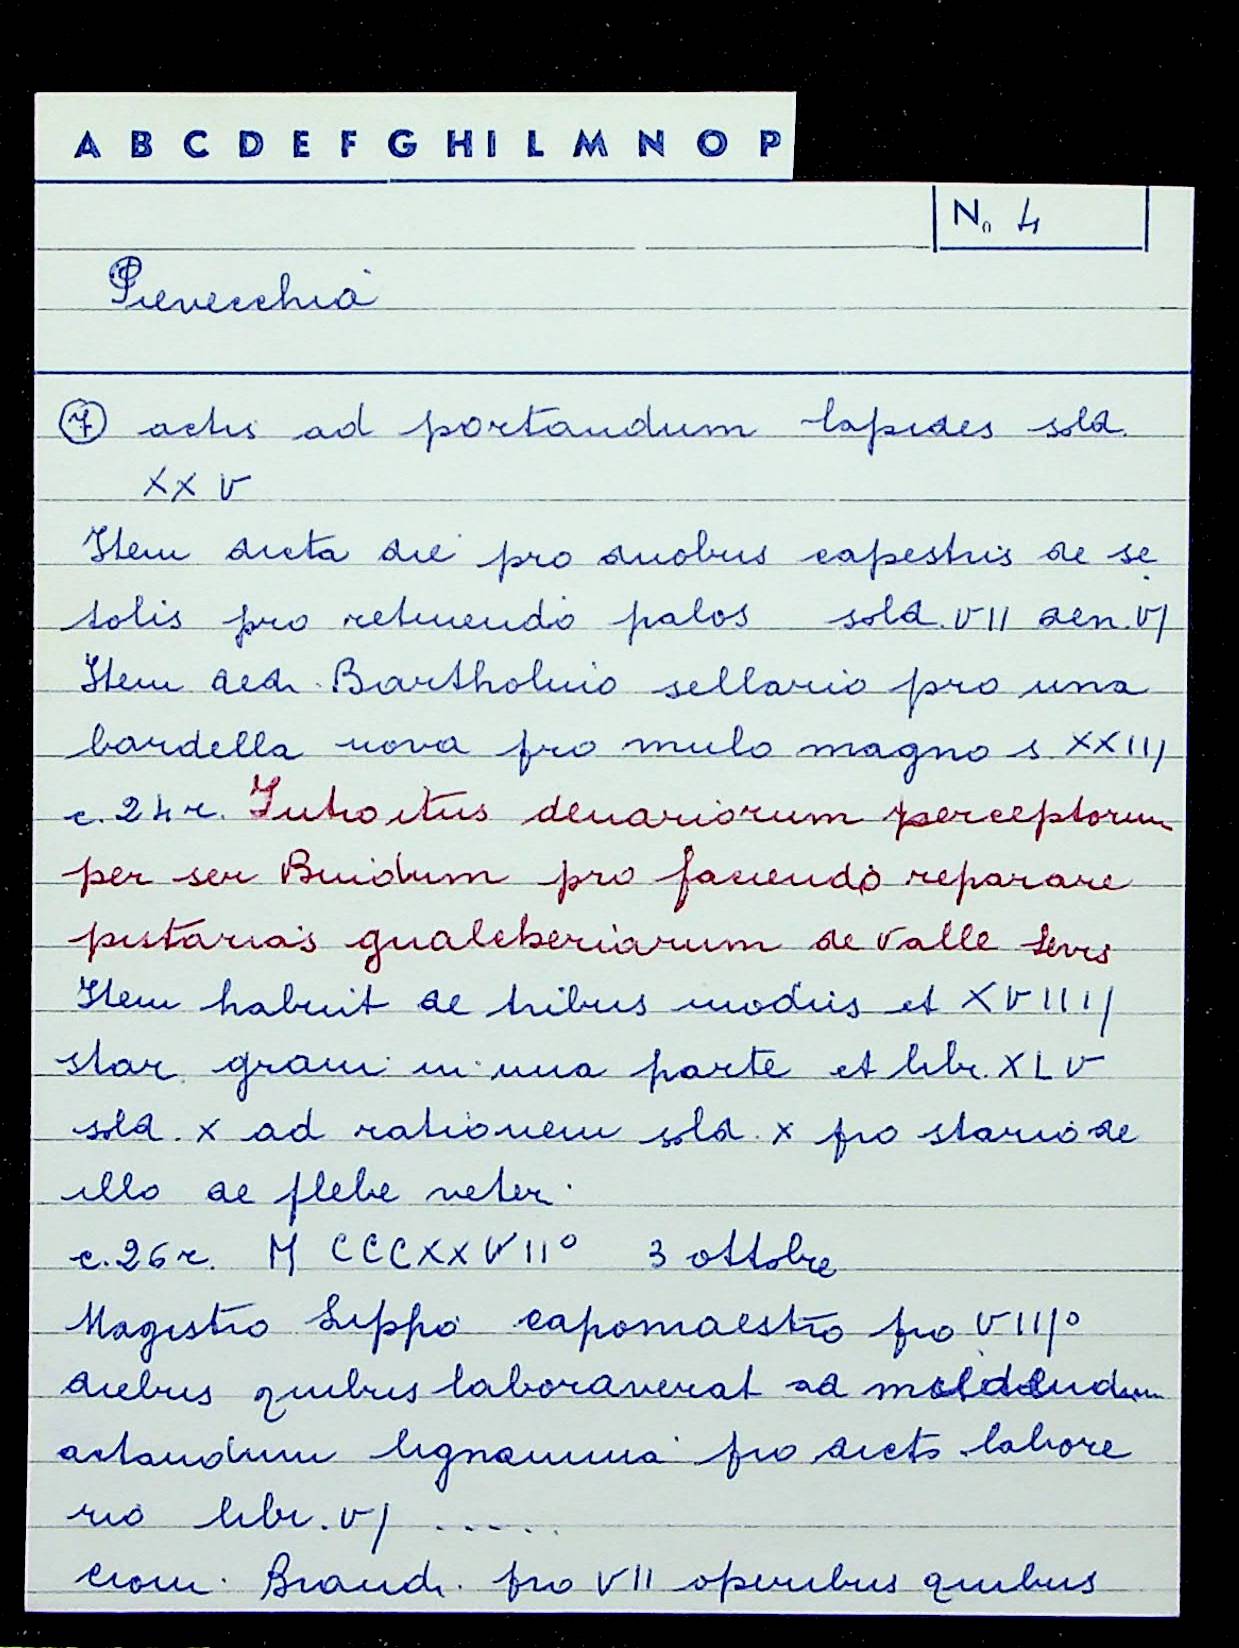 A B C D E F G H I L M N O P
No 4
Pievecchia
7 actis ad portandum lapides sold.
XXV
Item dicta die pro duobus capestris de se
tolis pro retinendo palos sold. VII den. VI
Item dedi Bartholinio sellario pro una
bardella nova pro mulo magno s. XXIII
c. 24 r. Introitus denariorum perceptorum
per ser Buidum pro faciendo reparare
pistarias gualcheriarum de Valle Sevis
Item habuit de tribus modiis et XVIIII
star. grani in una parte et libr. XLV
sold. X ad rationem sold. X pro stario de
illo de plebe veteri
c. 26 r. M CCCXXVII° 3 ottobre
Magistro Lippo capomaestro pro VIII°
diebus quibus laboraverat ad
actandum lignamina pro dicto labore
rio libr. VI .....
Cioni Brandi pro VII operibus quibus